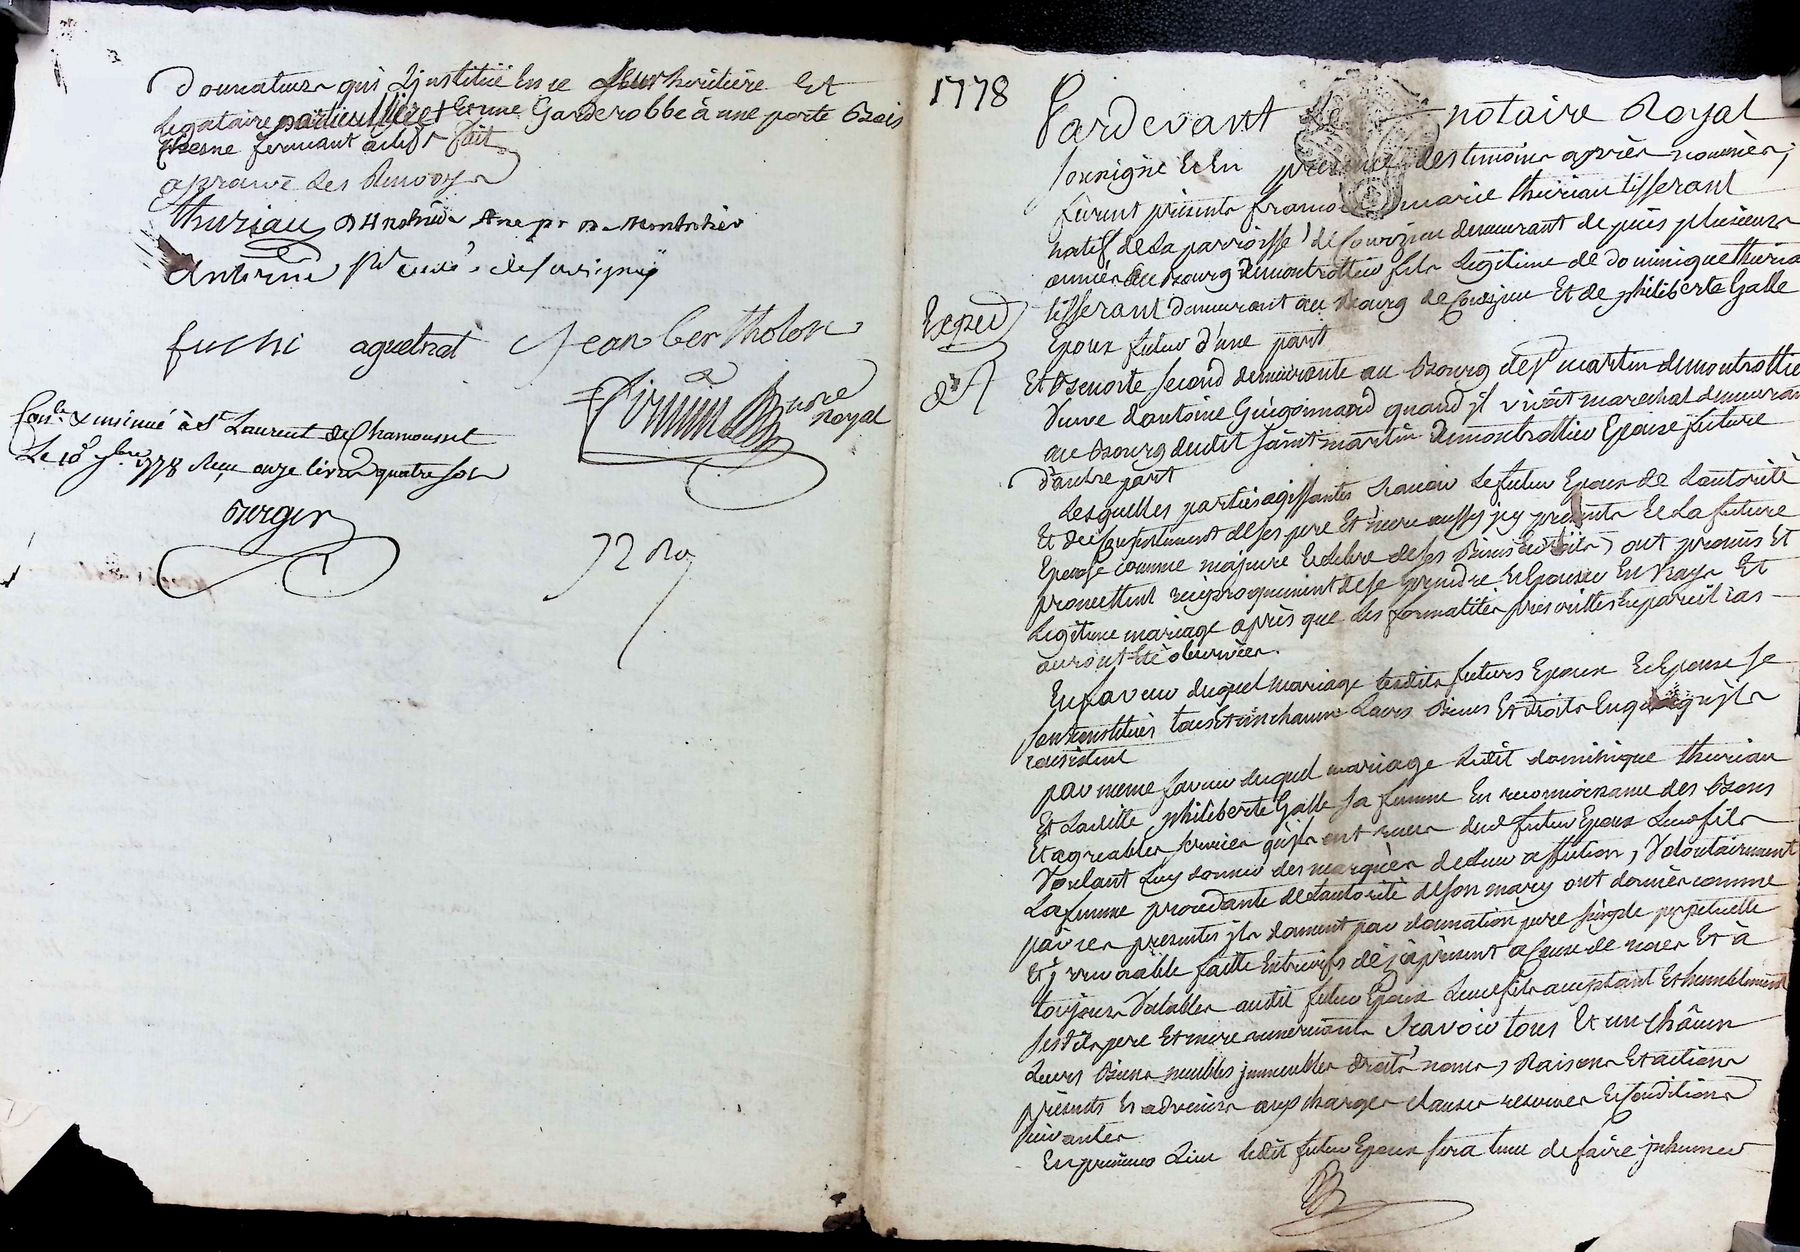 donnateurs qui Linstitüe En ce Leur heritiere Et
legataire particulliere + Et une Garderobbe à une porte Bois
Chesne fermant à clef fait
aprouvé les Renvoys
thuriau
Antoine curé de souvigny
fuchi aguetrat Jean bertholon
Royal
Con.lé & insinué à St Laurent de Chamousset
Le 18 7bre 1778 Reçu onze livres quatre sols
Berger
72
1778
Pardevant Le notaire Royal
soussigné Et En presence des temoins après nommés,
furent presents françois marie thuriau tisserant
natif de La parroisse de Courzieu demeurant depuis plusieurs
années au Bourg de montrottier fils Legitime de dominique thuriau
tisserant demeurant au Bourg de Courzieu Et de philiberte Galle
Epoux futur d'une part
Exped
Et Benoite second demeurante au Bourg de St martin de montrottier
Veuve d'antoine Guigonnand quand il vivoit marechal demeurant
au Bourg dudit saint martin de montrottier Epouse future
d'autre part
Lesquelles parties agissantes sçavoir Le futur Epoux de L'autorité
Et du consentement de ses pere Et mere aussy icy presents Et La future
Epouse comme majeure Et Libre de ses Biens Et droits, ont promis Et
promettent reciproquement de se prendre Et Epouser En vray Et
Legitime mariage après que Les formalités prescrittes En pareil cas
auront Eté observées.
En faveur duquel mariage lesdits futurs Epoux Et Epouse se
sont constitués tous Et un chacun Leurs Biens Et droits En quoy qu'ils
consistent
par meme faveur duquel mariage Ledit dominique thuriau
Et Laditte philiberte Galle sa femme En reconnoissance des Bons
Et agreables services qu'ils ont reçus dud. futur Epoux Leur fils
Voulant Luy donner des marques de Leur affection, Volontairement
La femme procedante de L'autorité de son mary ont donnés comme
par ces presentes ils donnent par donnation pure simple perpetuelle
Et irrevocable faitte Entrevifs dès à present à cause de noces Et à
toujours Valables audit futur Epoux Leur fils acceptant Et humblement
sesdits pere Et mere remerciant sçavoir tous Et un châcun
Leurs Biens meubles immeubles droits noms, Raisons Et actions
presents Et advenirs aux charges clauses reserves Et Conditions
suivantes
En premier Lieu ledit futur Epoux sera tenu de faire inhumer